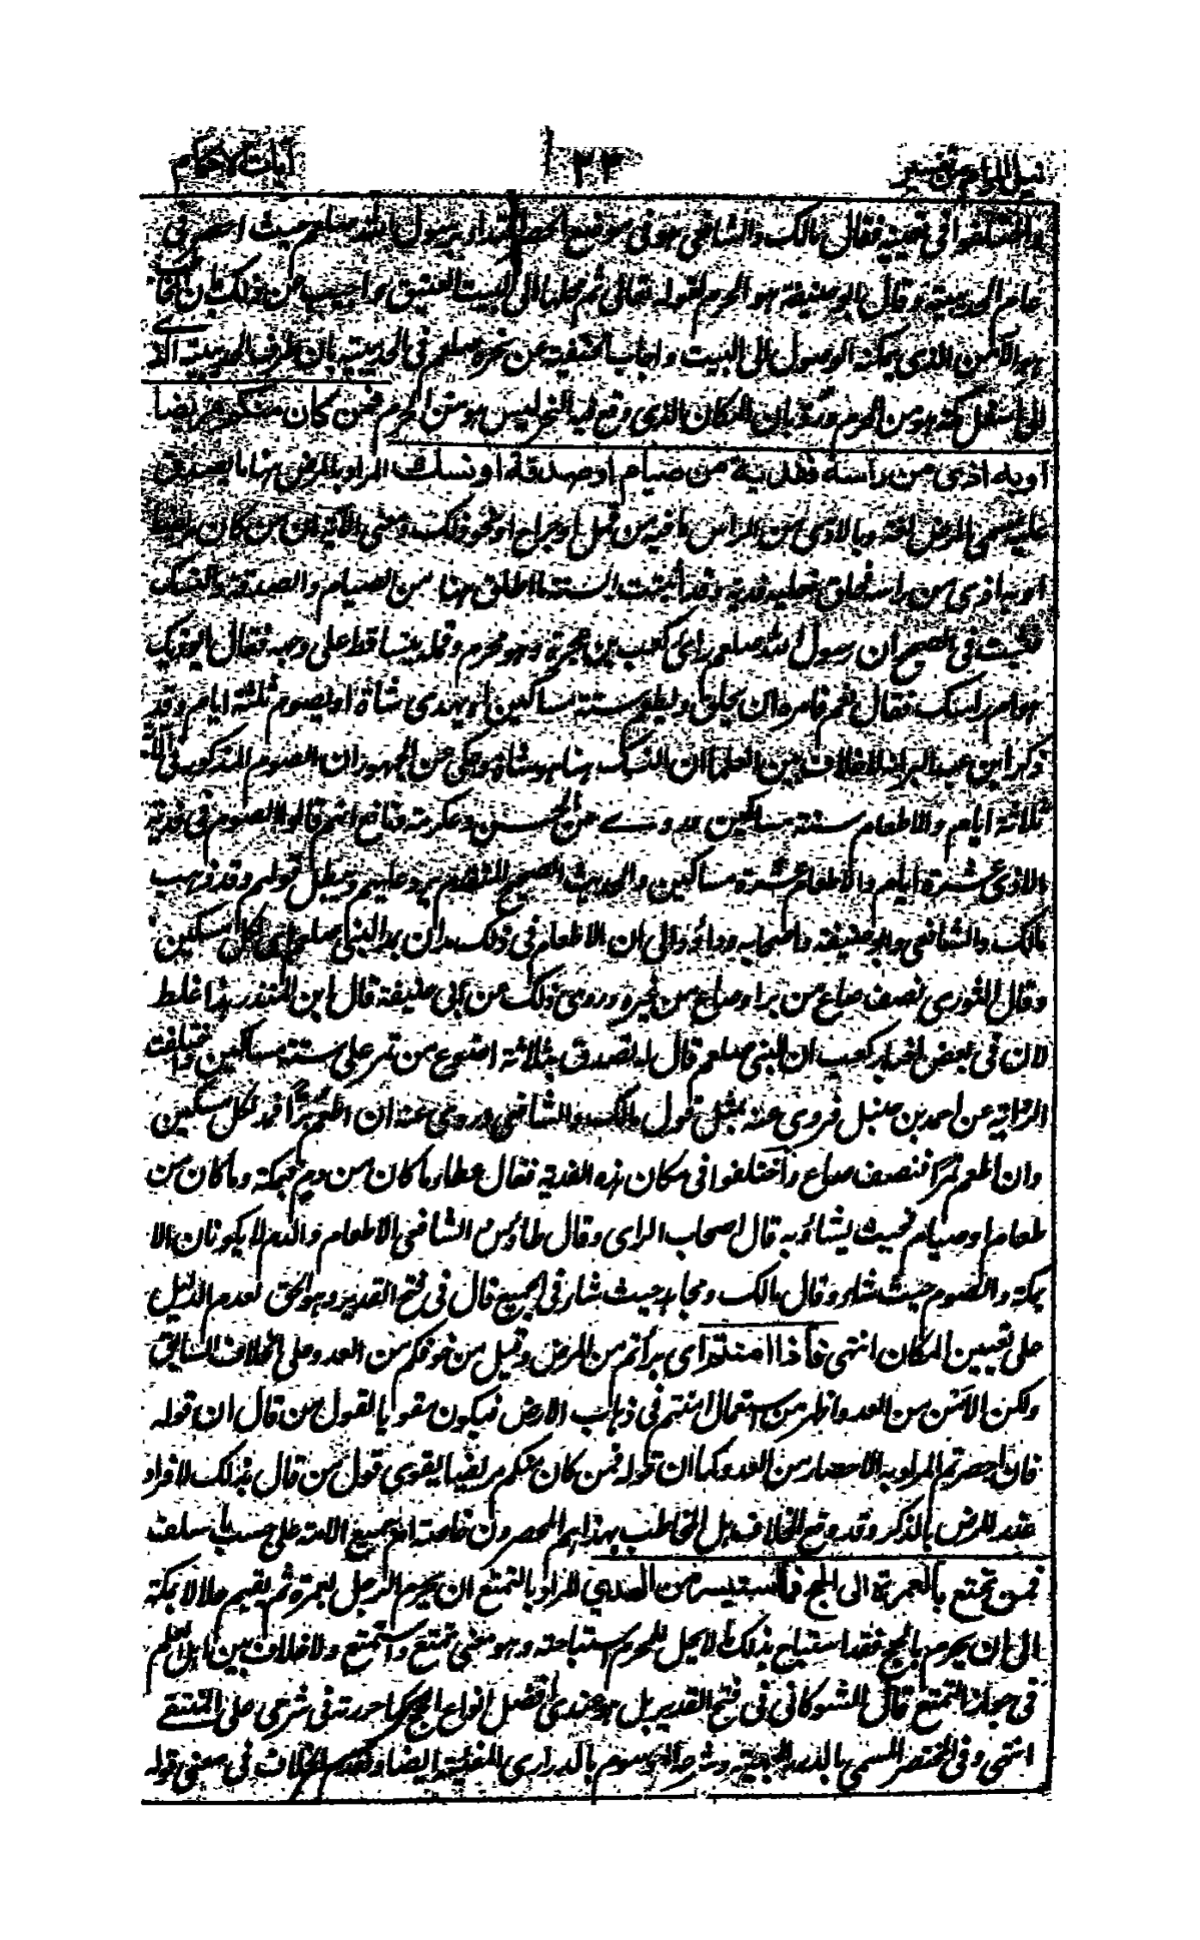 نيل المرام من تفسير ٢٣ آيات الاحكام
واختلفوا فى تعيينه فقال مالك والشافعى هو فى موضع الحصر اقتداء برسول الله صلعم حيث احصر فى
عام الحديبية وقال ابو حنيفة هو الحرم لقوله تعالى ثم محلها الى البيت العتيق واجيب عن ذلك بان المخاطب
به الآمن الذى يمكنه الوصول الى البيت واجاب الحنفية عن نحره صلعم فى الحديبية بان طرف الحديبية الذے
الى اسفل مكة هو من الحرم ورُدّ بان المكان الذى وقع فيه النحر ليس هو من الحرم فمن كان منكم مريضا
او به اذى من رأسه ففدية من صيام او صدقة او نسك المراد بالمرض هنا ما يصدق
عليه مسمى المرض لغة وبالاذى من الراس ما فيه من قمل او جراح او نحو ذلك ومعنى الآية ان من كان مريضا
او به اذى من راسه فحلق فعليه فدية وقد بينت السنة ما اطلق هنا من الصيام والصدقة والنسك
فثبت فى الصحيح ان رسول الله صلعم راى كعب بن عجرة وهو محرم وقمله يتساقط على وجهه فقال ايوذيك
هوام راسك فقال نعم فامره ان يحلق ويطعم ستة مساكين او يهدى شاة او يصوم ثلثة ايام وقد
ذكر ابن عبد البر انه لا خلاف بين العلما ان النسك هنا هو شاة وحكى عن الجمهور ان الصوم المذكور فى الآية
ثلاثة ايام والاطعام ستة مساكين وروے عن الحسن وعكرمة ونافع انهم قالوا الصوم فى فدية
الاذى عشرة ايام والاطعام عشرة مساكين والحديث الصحيح المتقدم يرد عليهم ويبطل قولهم وقد ذهب
مالك والشافعى وابو حنيفة واصحابه وداؤد الى ان الاطعام فى ذلك مدان بمد النبى صلعم اى لكل مسكين
وقال الثورى نصف صاع من بر او صاع من غيره وروى ذلك عن ابى حنيفة قال ابن المنذر هذا غلط
لان فى بعض اخبار كعب ان النبى صلعم قال له تصدق بثلاثة اصوع من تمر على ستة مساكين واختلفت
الرواية عن احمد بن حنبل فروى عنه مثل قول مالك والشافعى وروى عنه ان اطعم بُرًا فمد لكل مسكين
وان اطعم تمرًا فنصف صاع واختلفوا فى مكان هذه الفدية فقال عطاء ما كان من دم فبمكة وما كان من
طعام او صيام فحيث يشاء وبه قال اصحاب الراى وقال طاؤس والشافعى الاطعام والدم لا يكونان الا
بمكة والصوم حيث شاء وقال مالك ومجاهد حيث شاء فى الجميع قال فى فتح القدير وهو الحق لعدم الدليل
على تعيين المكان انتهى فاذا امنتم اى برأتم من المرض وقيل من خوفكم من العدو على الخلاف السابق
ولكن الامن من العدو اظهر من استعمال امنتم فى ذهاب المرض فيكون مقويا لقول من قال ان قوله
فان احصرتم المراد به الاحصار من العدو كما ان قوله فمن كان منكم مريضا يقوى قول من قال بذلك لافراد
عذر المرض بالذكر وقد وقع الخلاف هل المخاطب بهذا هم المحصرون خاصة ام جميع الامة على حسب ما سلف
فمن تمتع بالعمرة الى الحج فما استيسر من الهدي المراد بالتمتع ان يحرم الرجل بعمرة ثم يقيم حلالا بمكة
الى ان يحرم بالحج فقد استباح بذلك ما لا يحل للمحرم استباحته وهو معنى تمتع واستمتع ولا خلاف بين اهل العلم
فى جواز التمتع قال الشوكانى فى فتح القدير بل هو عندى افضل انواع الحج كما حررته فى شرحى على المنتقے
انتهى وفى المختصر المسمى بالدرر البهية وشرحه الموسوم بالدرارى المضية ايضا وتقدم الخلاف فى معنى قوله